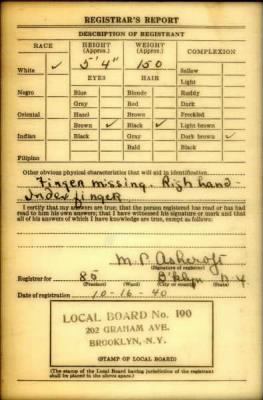 REGISTRAR'S REPORT
DESCRIPTION OF REGISTRANT
RACE HEIGHT (Approx.) WEIGHT (Approx.) COMPLEXION
5' 4" 150
White ✓ Sallow
EYES HAIR Light
Negro Blue Blonde Ruddy
Gray Red Dark
Oriental Hazel Brown Freckled
Brown ✓ Black ✓ Light brown
Indian Black Gray Dark brown ✓
Bald Black
Filipino
Other obvious physical characteristics that will aid in identification
Finger missing. Righ hand -
Index finger
I certify that my answers are true; that the person registered has read or has had
read to him his own answers; that I have witnessed his signature or mark and that
all of his answers of which I have knowledge are true, except as follows:
M. P. Ashcroft
(Signature of registrar)
Registrar for 85 B'klyn N.Y
(Precinct) (Ward) (City or county) (State)
Date of registration 10-16-40
LOCAL BOARD No. 190
202 GRAHAM AVE.
BROOKLYN, N.Y.
(STAMP OF LOCAL BOARD)
(The stamp of the Local Board having jurisdiction of the registrant
shall be placed in the above space.)